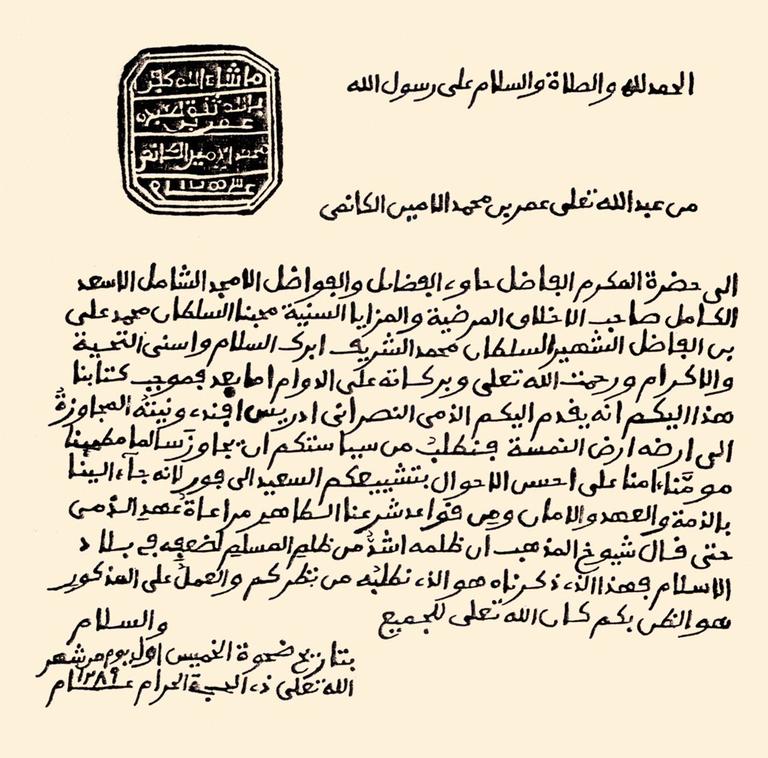 ما شاء الله كان
بالله ثقة عبده
عمر بن
محمد الامين الكانمي
الحمد لله والصلاة والسلام على رسول الله
من عبد الله تعلى عمر بن محمد الامين الكانمى
الى حضرة المكرم الفاضل حاوى الفضايل والفواضل الامجد الشامل الاسعد
الكامل صاحب الاخلاق المرضية والمزايا السنية محبنا السلطان محمد على
بن الفاضل الشهير السلطان محمد الشريف ابرك السلام واسنى التحية
والاكرام ورحمت الله تعلى وبركاته على الدوام اما بعد فموجب كتابنا
هذا اليكم انه يقدم اليكم الذمى النصرانى ادريس افندى ونيته المجاوزة
الى ارضه ارض النمسة فنطلب من سياستكم ان يجاوز سالما مطمينا
مومَّنا ءامنا على احسن الاحوال بتشييعكم السعيد الى فور لانه جآء الينا
بالذمة والعهد والامان ومن قواعد شرعنا الطاهر مراعاة عهد الذمى
حتى قال شيوخ المذهب ان ظلمه اشد من ظلم المسلم لضعفه فى بلاد
الاسلام فهذا الذى ذكرناه هو الذى نطلبه من نظركم والعمل على المذكور
هو الظن بكم كان الله تعلى للجميع والسلام
بتاريخ ضحوة الخميس اول يوم من شهر
الله تعلى ذى الحجة الحرام عام ١٢٨٩